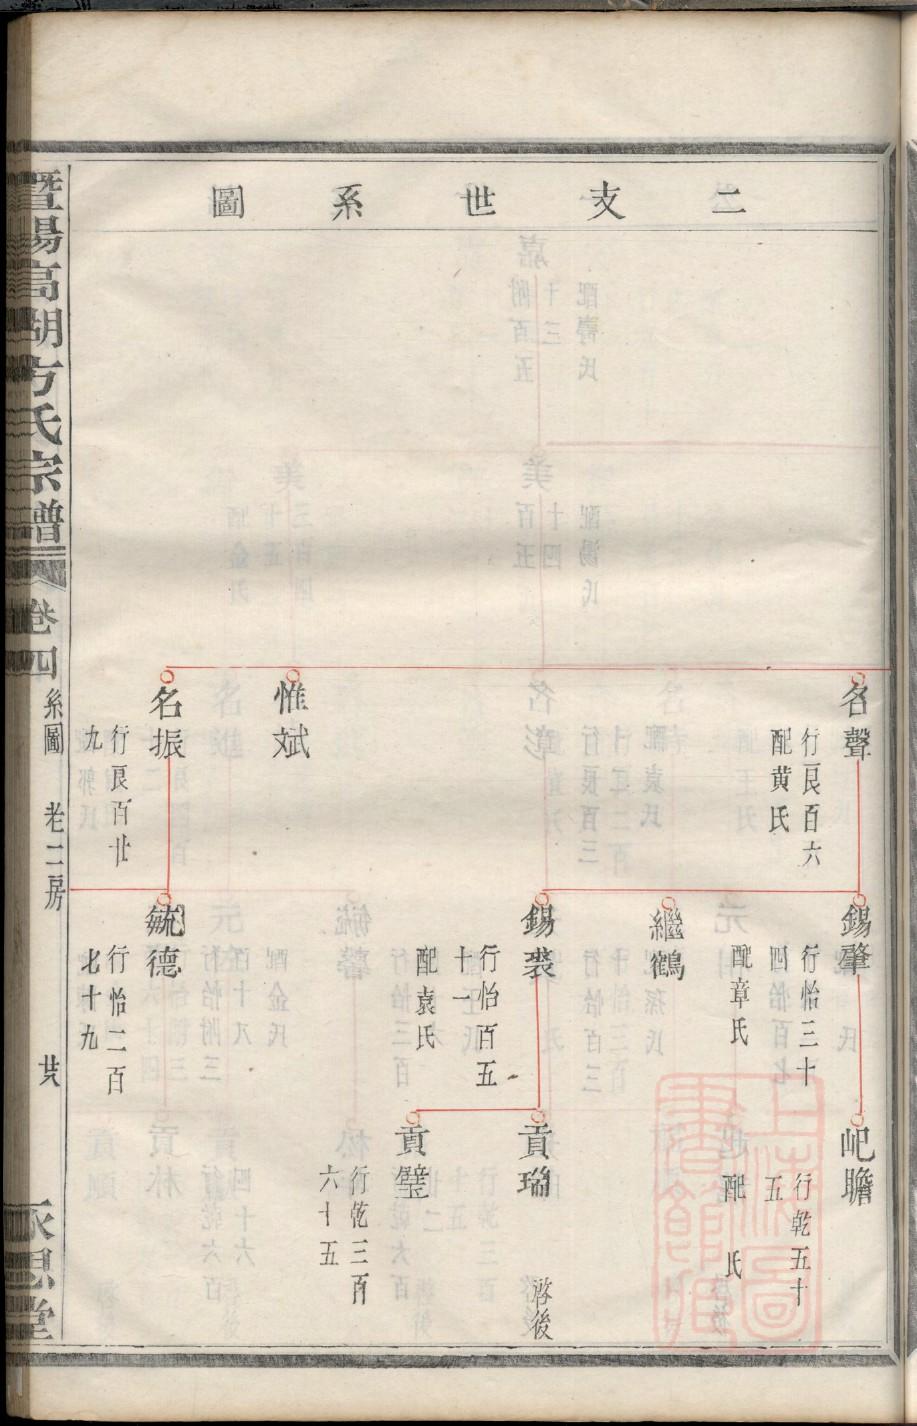 二支世系圖
名聲
行艮百六
配黄氏
惟斌
名振
行艮百廿
九
錫肇
行怡三十
四
配章氏
繼鶴
錫裘
行怡百五
十一
配袁氏
毓德
行怡二百
七十九
屺瞻
行乾五十
五
配 氏
貢瑞
啓後
貢璧
行乾三百
六十五
暨陽高湖方氏宗譜
卷四
系圖
老二房
永思堂